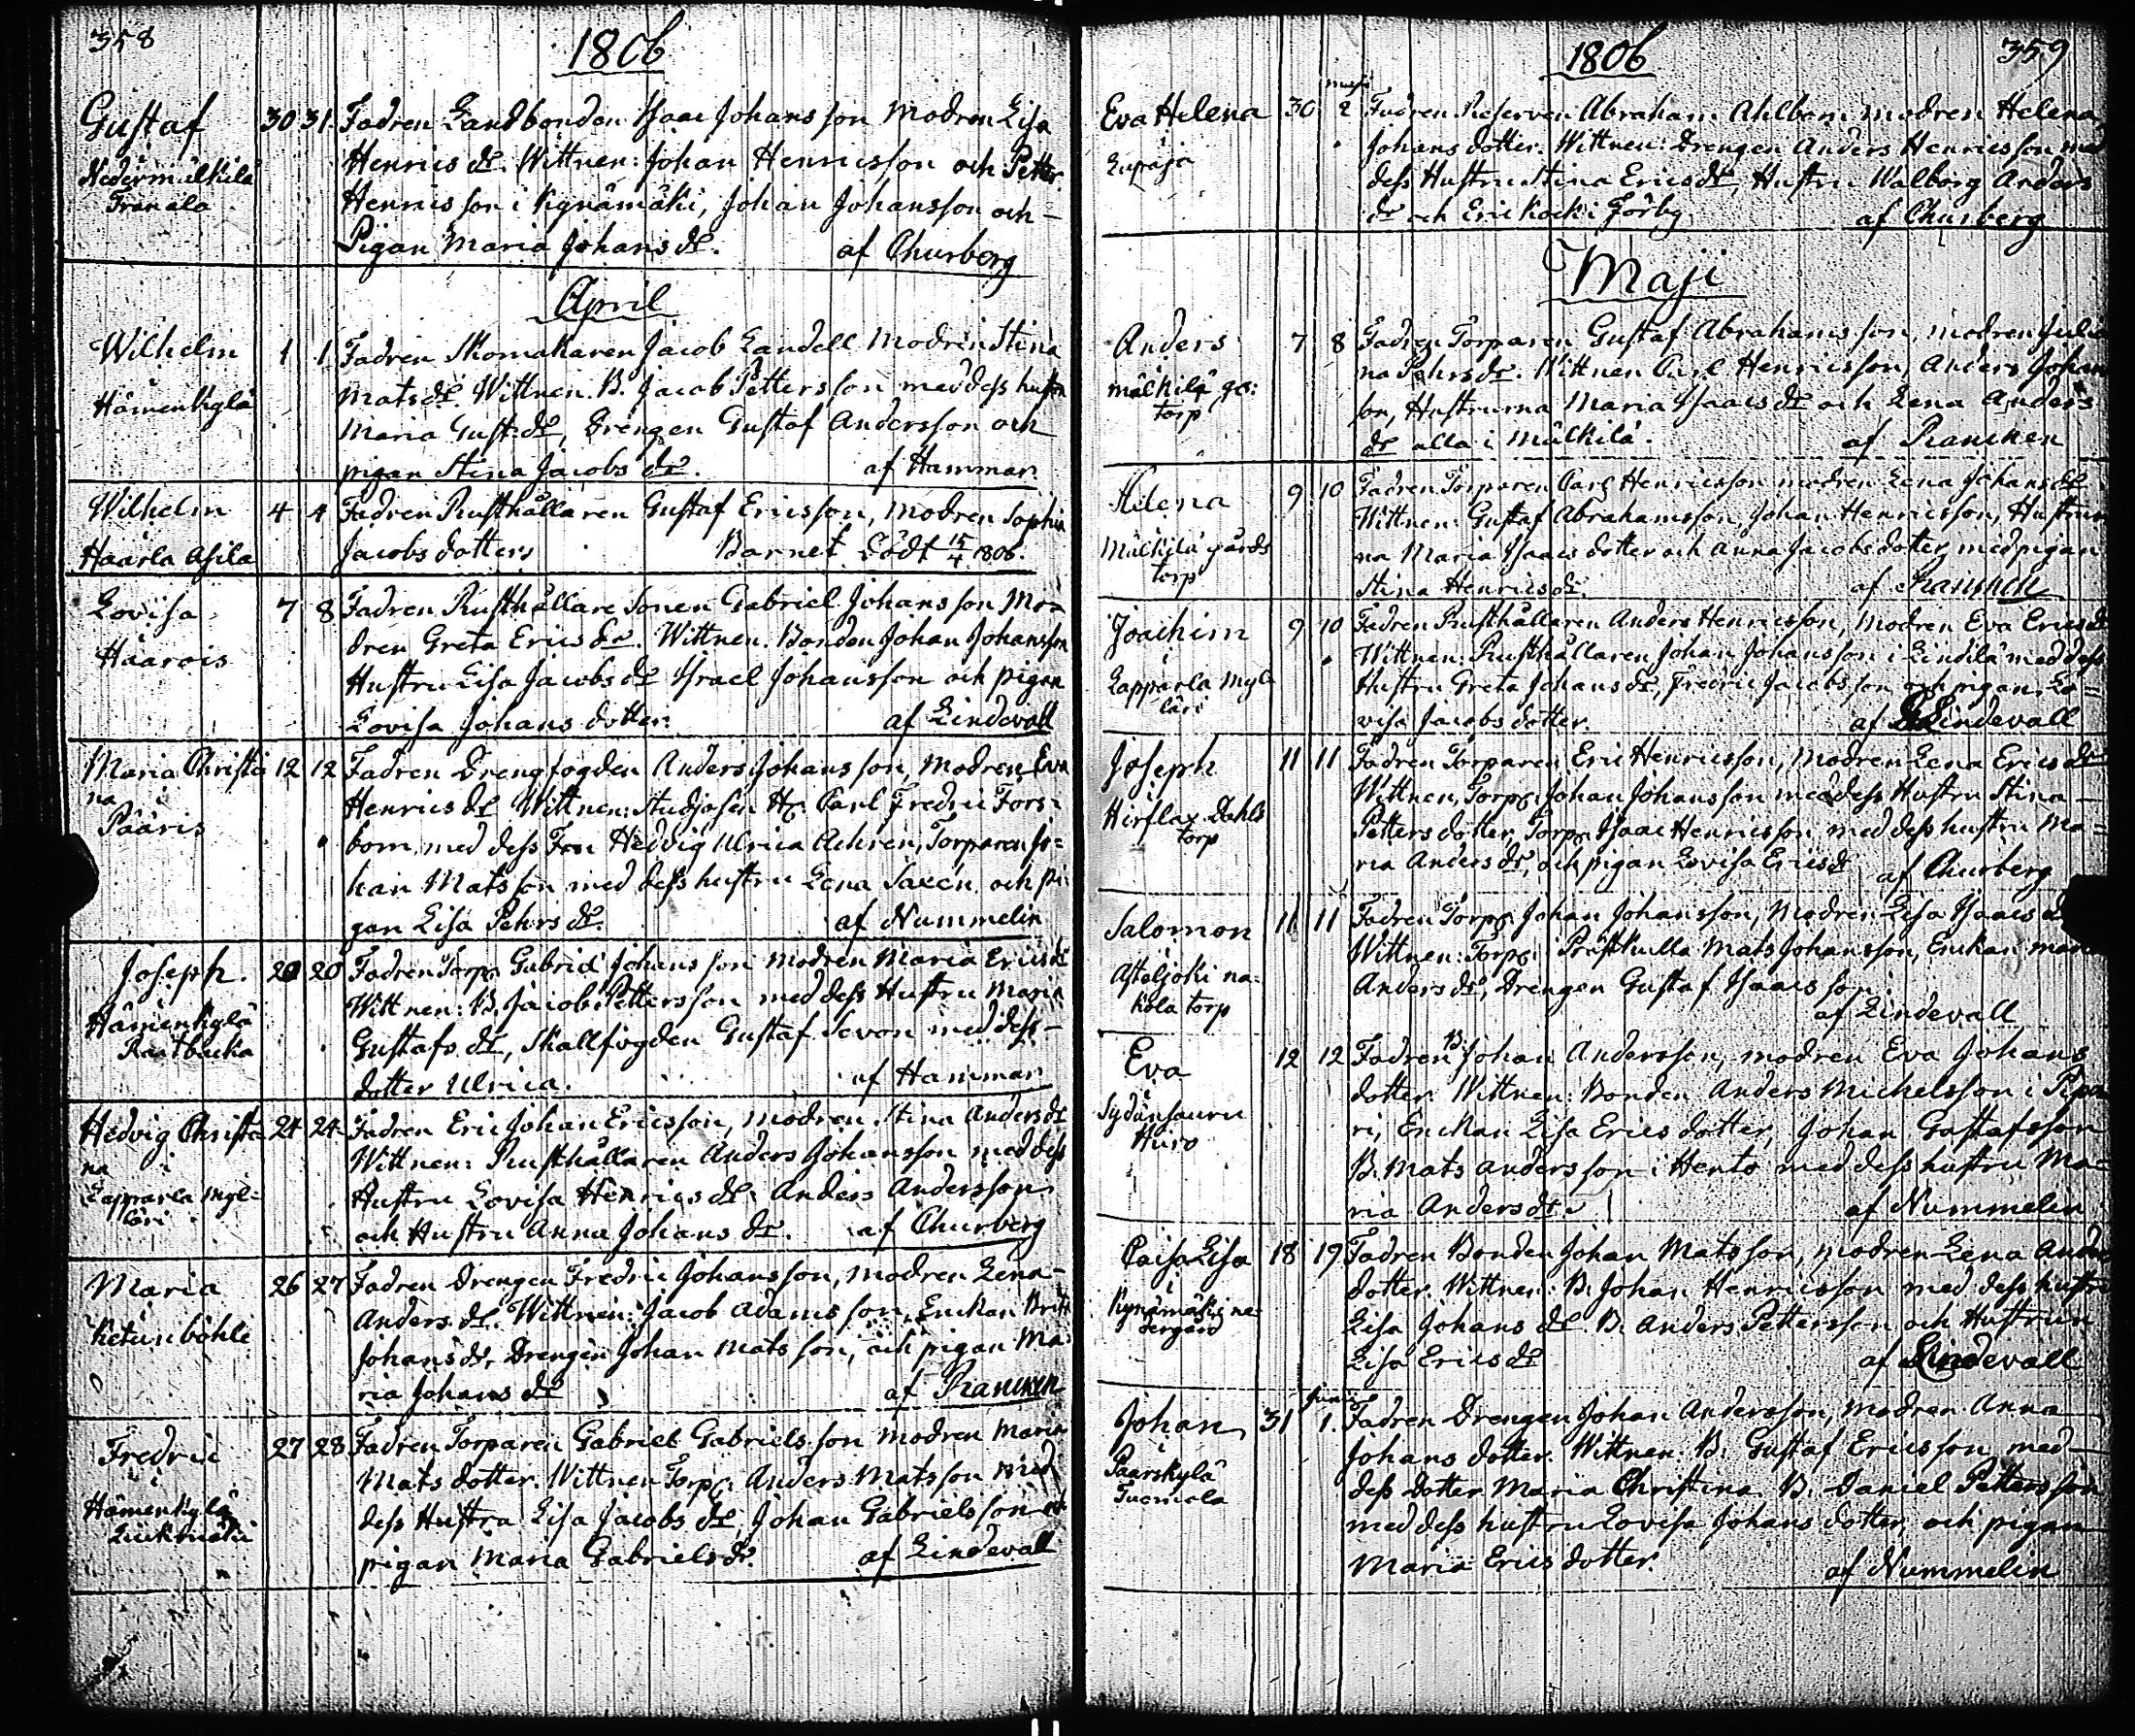 358
1806
Gustaf 30 31 Fadren Landbonden Isaac Johansson Modren Lisa
i Henrics dr. Wittnen: Johan Henricsson och Petter
Nedermälkilä Henricsson i Kynämäki, Johan Johansson och
Franala Pigan Maria Johans dr. af Churberg
April
Wilhelm 1 1 Fadren Skomakaren Jacob Landell Modren Stina
i Matsdr. Wittnen. B. Jacob Pettersson med dess hustru
Hämenkylä Maria Gust:dr, Drengen Gustaf Andersson och
pigan Stina Jacobs dr. af Hammar
Wilhelm 4 4 Fadren Rusthållaren Gustaf Ericsson, Modren Sophia
Haarla Asila Jacobs dotter. Barnet Dödt 15/4 1806.
Lovisa 7 8 Fadren Rusthållare Sonen Gabriel Johansson Mo=
i dren Greta Erics dr. Wittnen. Bonden Johan Johansson
Haarois Hustru Lisa Jacobs dr Israel Johansson och pigan
Lovisa Johans dotter. af Lindevall
Maria Christi 12 12 Fadren Drengfogden Anders Johansson, Modren Eva
na i Henrics dr Wittnen: Studjosen Hr. Carl Fredric Fors:
Pääris bom med dess Fru Hedvig Ulrica Achren, Torparen Jo=
han Matsson med dess hustru Lena Saxén och pi
gan Lisa Pehrs dr. af Nummelin
Joseph. 20 20 Fadren Torp. Gabriel Johansson modren Maria Ericsdr
i Wittnen: B. Jacob Pettersson med dess Hustru Maria
Hämenkylä Gustafs dr, Skallfogden Gustaf Sevon med dess
Raatbacka dotter Ulrica. af Hammar
Hedvig Christi 24 24 Fadren Eric Johan Ericsson, Modren Stina Andersdr
na i Wittnen: Rusthållaren Anders Johansson med dess
Lapparla Myl= Hustru Lovisa Henrics dr. Anders Andersson
läri och Hustru Anna Johans dr. af Churberg
Maria 26 27 Fadren Drengen Fredric Johansson, Modren Lena
i Anders dr. Wittnen: Jacob Adamsson, Enckan Britt
Ketunböhle Johansdr, Drengen Johan Matsson, och pigan Ma
ria Johans dr af Rancken
Fredric 27 28 Fadren Torparen Gabriel Gabrielsson Modren Maria
i Mats dotter. Wittnen Torp: Anders Matsson med
Hämenkylä dess Hustru Lisa Jacobs dr, Johan Gabrielsson och
pigan Maria Gabrielsdr. af Lindevall
1806 359
maji
Eva Helena 30 2 Fadren Reserven Abraham Ahlbom modren Helena
i Johans dotter. Wittnen: Drengen Anders Henricsson med
Lupaja dess Hustru Stina Ericsdr, Hustru Walborg Anders
dr och Eric Kock i Förby af Churberg
Maji
Anders 7 8 Fadren Torparen Gustaf Abrahamsson, modren Julia
i na Pehrsdr. Wittnen Carl Henricsson, Anders Johan
Mälkilä gs: son, Hustrurna Maria Isaacs dr och Lena Anders
torp dr alla i Mälkilä. af Rancken
Helena 9 10 Fadren Torparen Carl Henricsson modren Lena Johansdr
i Wittnen: Gustaf Abrahamsson, Johan Henricsson, Hustrur
Mälkilä gårds na Maria Isaacs dotter och Anna Jacobs dotter med pigan
torp Stina Henricsdr. af Rancken
Joachim 9 10 Fadren Rusthållaren Anders Henricsson, Modren Eva Ericsdr
i Wittnen: Rusthållaren Johan Johansson i Lindilä med dess
Lapparla Myl Hustru Greta Johans dr, Fredric Jacobsson och pigan Lo=
läri visa Jacobs dotter. af Lindevall
Joseph 11 11 Fadren Torparen Eric Henricsson, Modren Lena Erics dr
i Wittnen, Torp: Johan Johansson med dess Hustru Stina
Hirslax Dahls Petters dotter, Torp: Isaac Henricsson med dess hustru Ma=
torp ria Anders dr, och pigan Lovisa Ericsdr af Churberg
Salomon 11 11 Fadren Torp: Johan Johansson, Modren Lisa Isaacs d
i Wittnen: Torp: i Prästkulla Mats Johansson, Enckan Maria
Asteljoki na= Anders dr, Drengen Gustaf Isaacsson.
kola torp af Lindevall
Eva 12 12 Fadren B. Johan Andersson, modren Eva Johans
i dotter. Wittnen: Bonden Anders Michelsson i Pipa
Sydänsauru ri, Enckan Lisa Erics dotter, Johan Gustafsson
Huro B. Mats Andersson i Hento med dess hustru Ma=
ria Andersdr. af Nummelin
Caisa Lisa 18 19 Fadren Bonden Johan Matsson, modren Lena Anders
i dotter. Wittnen: B. Johan Henricsson med dess hustru
Kynämäki ne= Lisa Johans dr. B. Anders Pettersson och Hustrun
dergård Lisa Ericsdr af Lindevall
Junii
Johan 31 1. Fadren Drengen Johan Andersson, modren Anna
i Johans dotter. Wittnen: B. Gustaf Ericsson med
Paarskylä dess dotter Maria Christina. B. Daniel Pettersson
Tuomola med dess hustru Lovisa Johans dotter, och pigan
Maria Erics dotter. af Nummelin